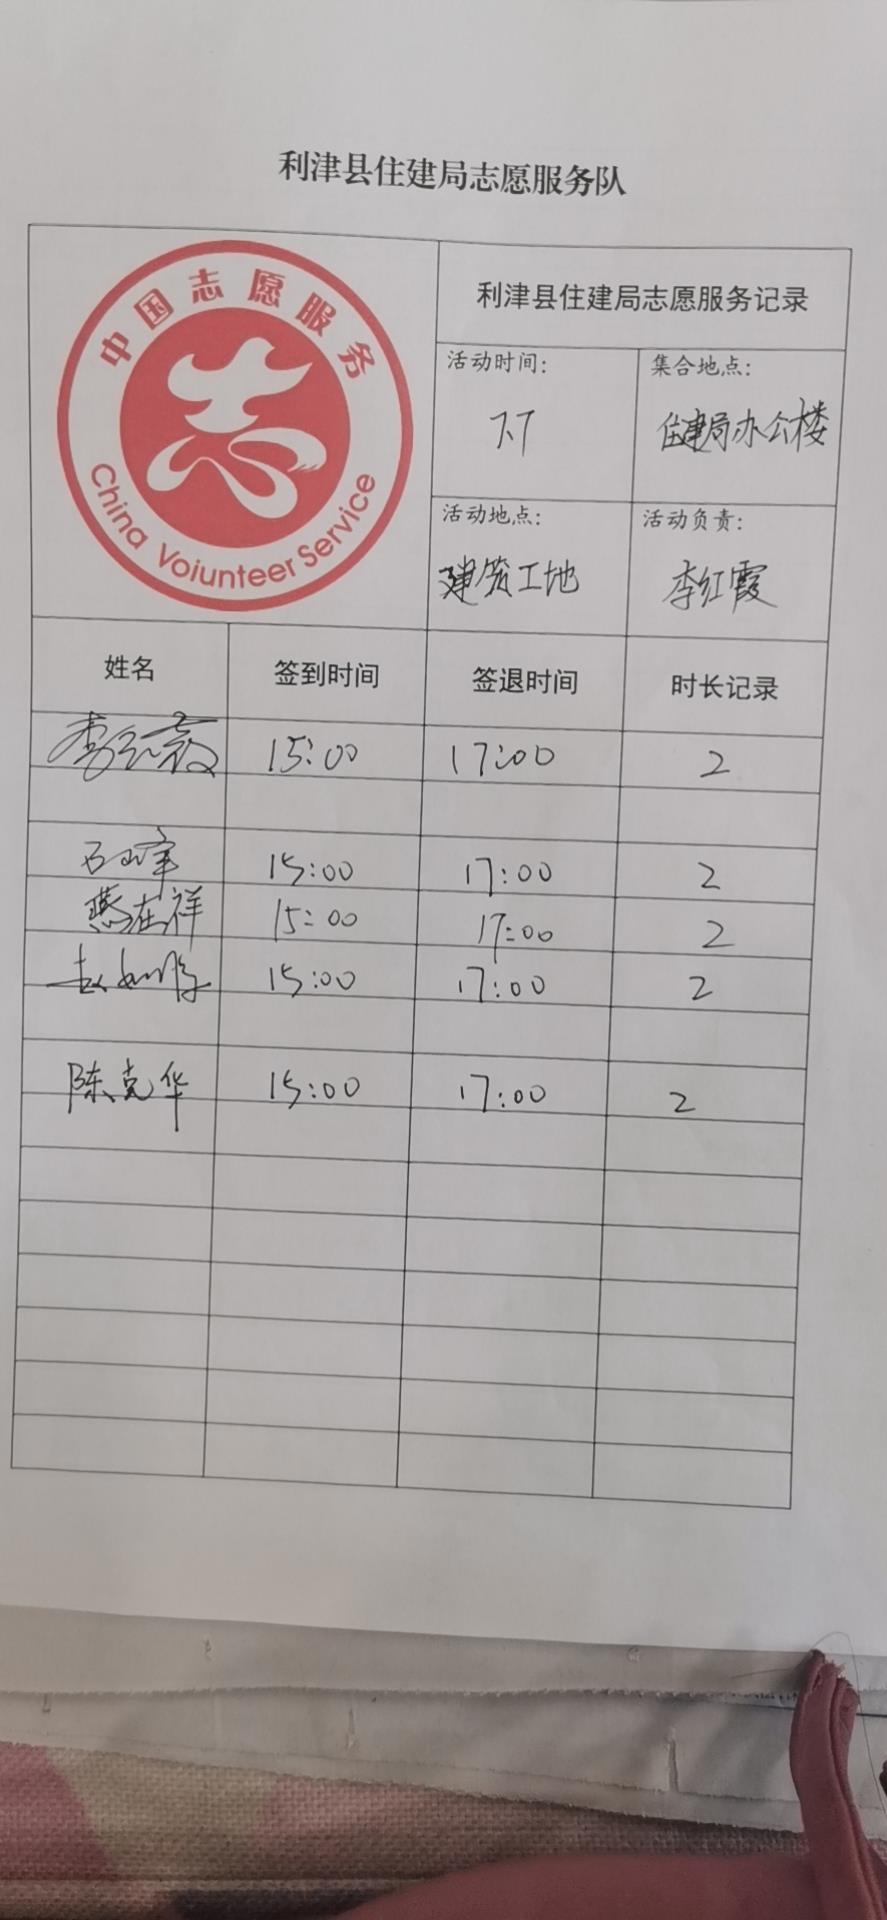 利津县住建局志愿服务队
中国志愿服务
China Voiunteer Service
利津县住建局志愿服务记录
活动时间: 集合地点:
7.7 住建局办公楼
活动地点: 活动负责:
建筑工地 李红霞
姓名 签到时间 签退时间 时长记录
李红霞 15:00 17:00 2
15:00 17:00 2
燕在祥 15:00 17:00 2
15:00 17:00 2
陈克华 15:00 17:00 2